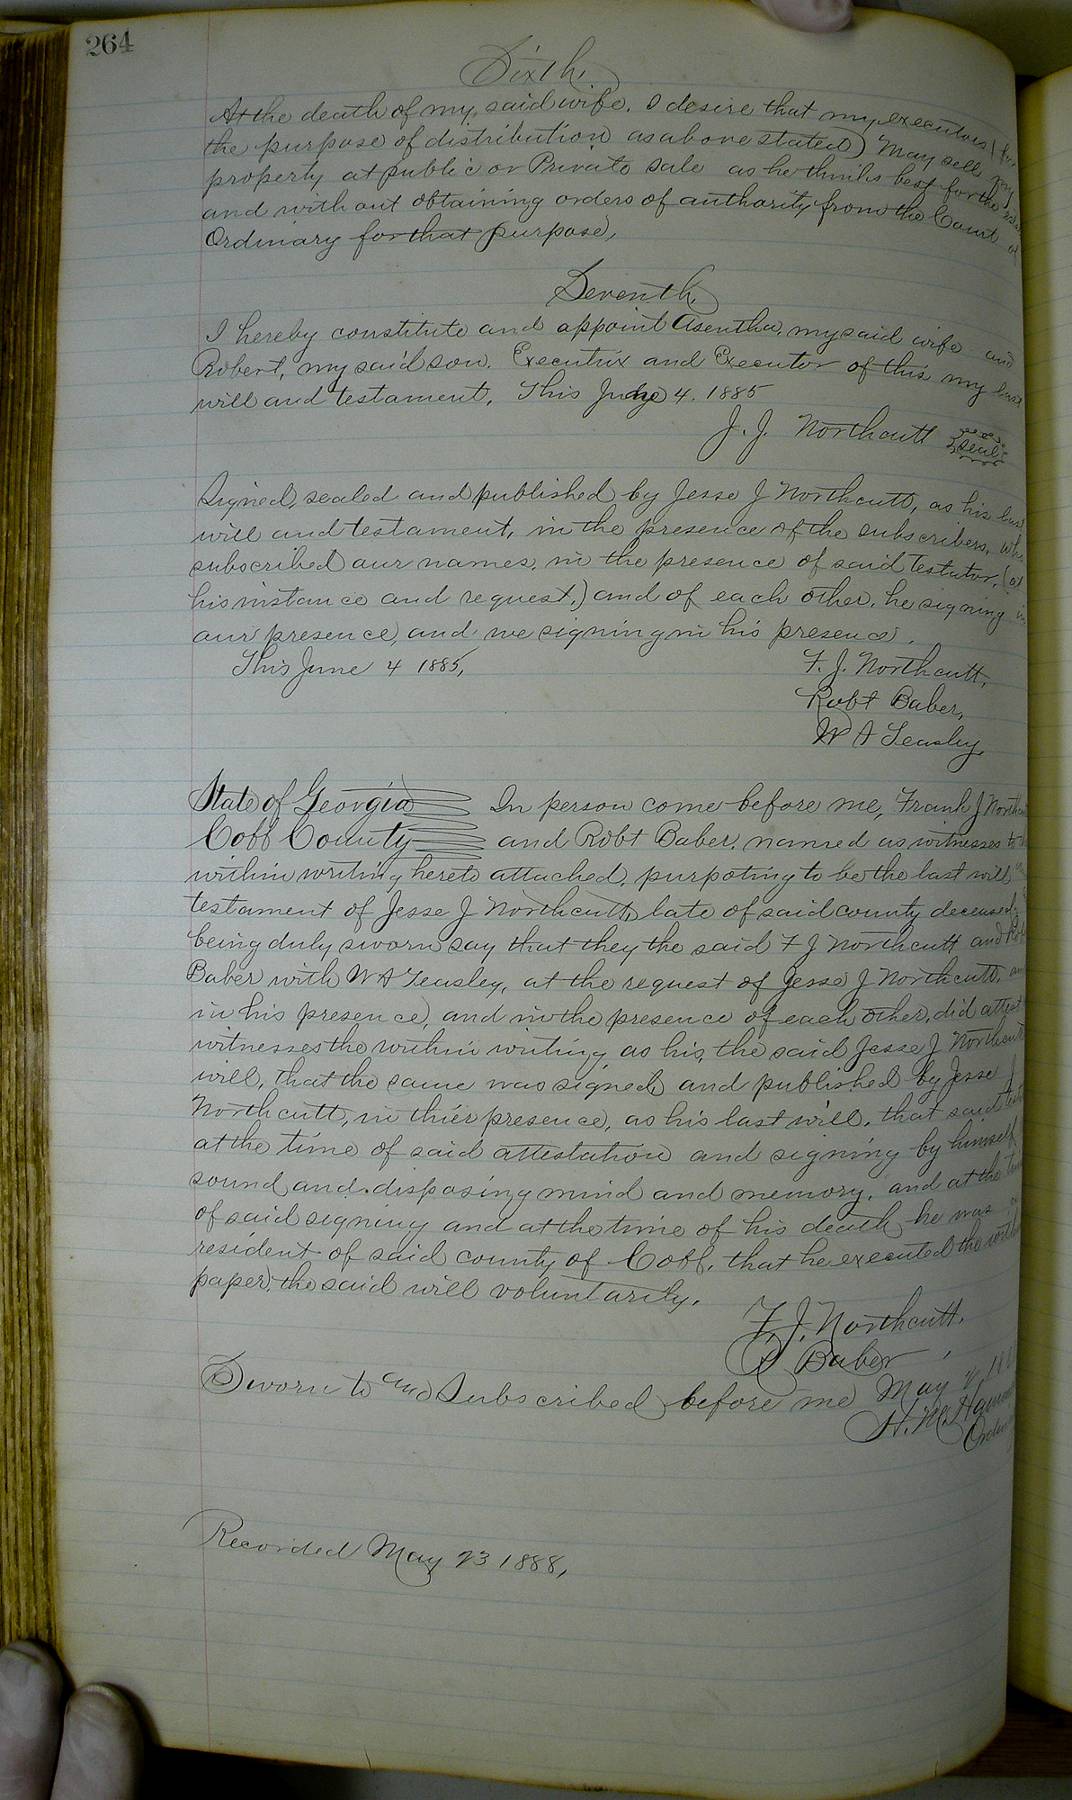 264
Sixth,
At the death of my said wife. I desire that my executors (for
the purpose of distribution as above stated) May sell my
property at public or Private sale as he thinks best for the
and without obtaining orders of authority from the Court of
Ordinary for that purpose,
Seventh,
I hereby constitute and appoint Asentha, my said wife and
Robert, my said son. Executrix and Executor of this my last
will and testament. This June 4. 1885
J. J. Northcutt seal
Signed, sealed and published by Jesse J Northcutt, as his last
will and testament, in the presence of the subscribers, who
subscribed our names, in the presence of said Testator, (at
his instance and request,) and of each other, he signing in
our presence, and we signing in his presence.
This June 4 1885,
F. J. Northcutt,
Robt Baber,
W A Teasley,
State of Georgia In person come before me, Frank J
Cobb County and Robt Baber, named as witnesses to
within writing hereto attached, purpoting to be the last will
testament of Jesse J Northcutt, late of said county deceased,
being duly sworn say that they the said F J Northcutt and
Baber with W A Teasley, at the request of Jesse J Northcutt, and
in his presence, and in the presence of each other, did attest
witnesses the within writing as his, the said Jesse J Northcutt
will, that the same was signed and published by Jesse J
Northcutt, in thier presence, as his last will. that said
at the time of said attestation and signing by himself
sound and disposing mind and memory, and at the time
of said signing and at the time of his death he was
resident of said county of Cobb, that he executed the within
paper, the said will voluntarily.
F. J. Northcutt.
Baber
Sworn to and Subscribed before me May
H. M.
Recorded May 23 1888,